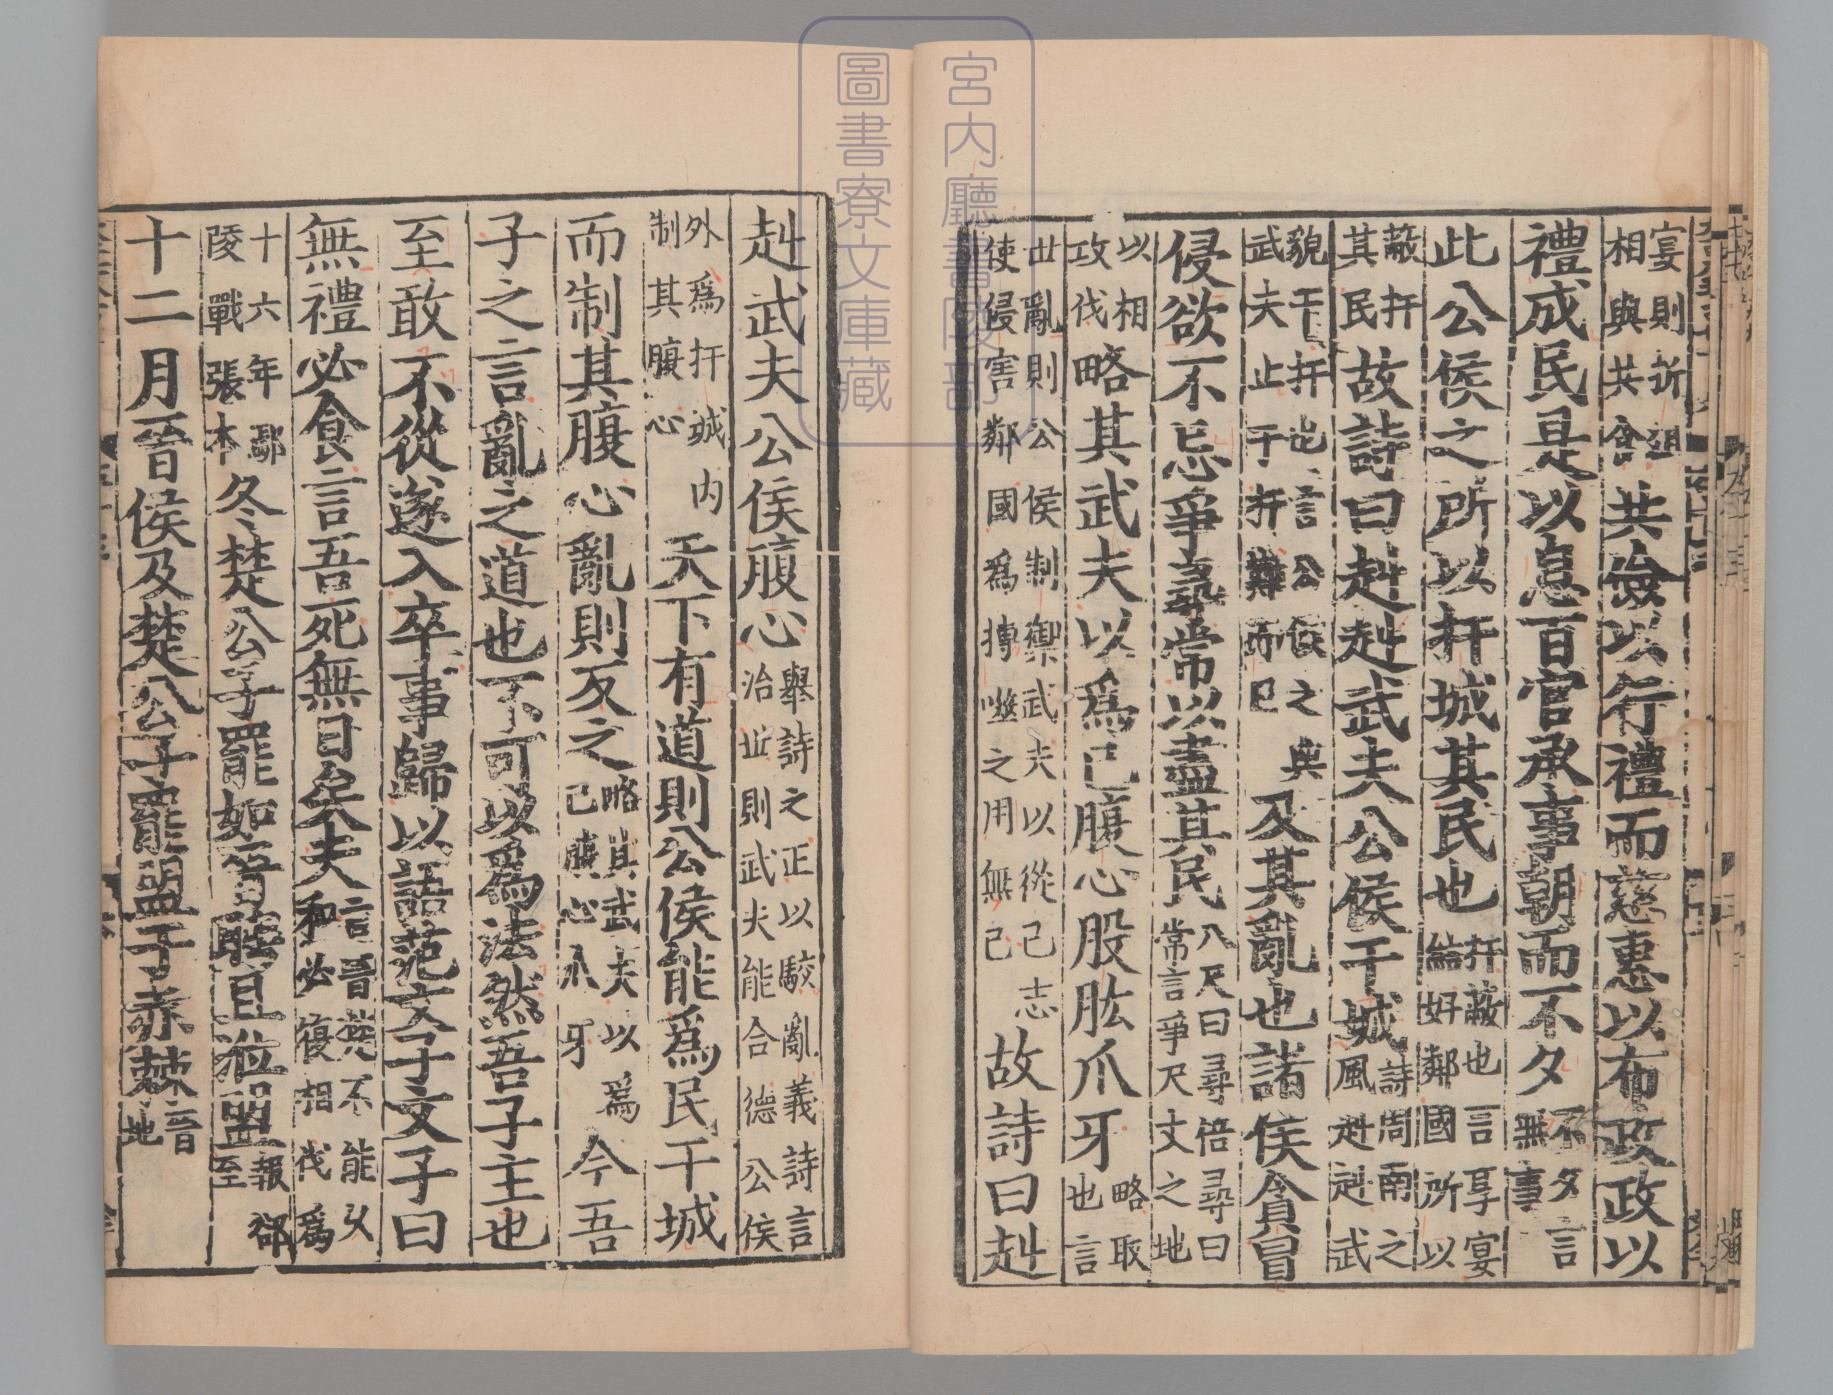 宴則折俎相與共食共儉以行禮而慈惠以布政政以
禮成民是以息百官承事朝而不夕不夕言無事
此公侯之所以扞城其民也扞蔽也言享宴結好鄰國所以
蔽扞其民故詩曰赳赳武夫公侯干城詩周南之風赳赳武
貌干扞也言公侯之與武夫止于扞難而已及其亂也諸侯貪冒
侵欲不忌爭尋常以盡其民八尺曰尋倍尋曰常言爭尺丈之地
以相攻伐略其武夫以爲己腹心股肱爪牙略取也言
世亂則公侯制禦武夫以從己志使侵害鄰國爲搏噬之用無已故詩曰赳
赳武夫公侯腹心舉詩之正以駮亂義詩言治世則武夫能合德公侯
外爲扞城内制其腹心天下有道則公侯能爲民干城
而制其腹心亂則反之略其武夫以爲己腹心爪牙今吾
子之言亂之道也不可以爲法然吾子主也
至敢不從遂入卒事歸以語范文子文子曰
無禮必食言吾死無日矣夫言晉楚不能久和必復相伐爲
十六年鄢陵戰張本冬楚公子罷如晉聘且涖盟報郤至
十二月晉侯及楚公子罷盟于赤棘晉地
宮内廳書陵部
圖書寮文庫藏